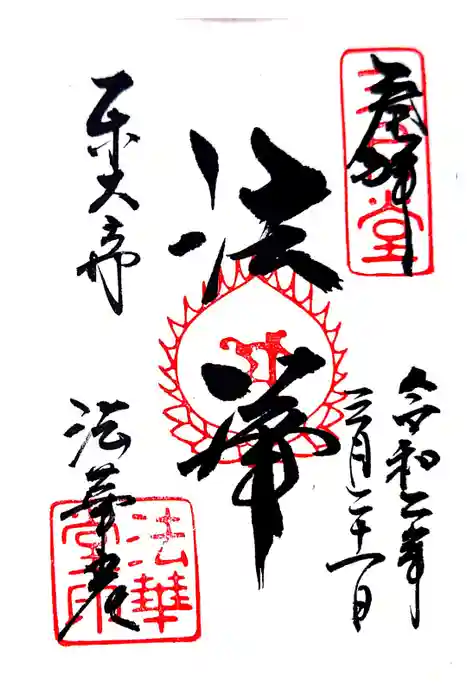 奉拝
令和二年
三月二十一日
法華
東大寺
法華堂
法華
堂印